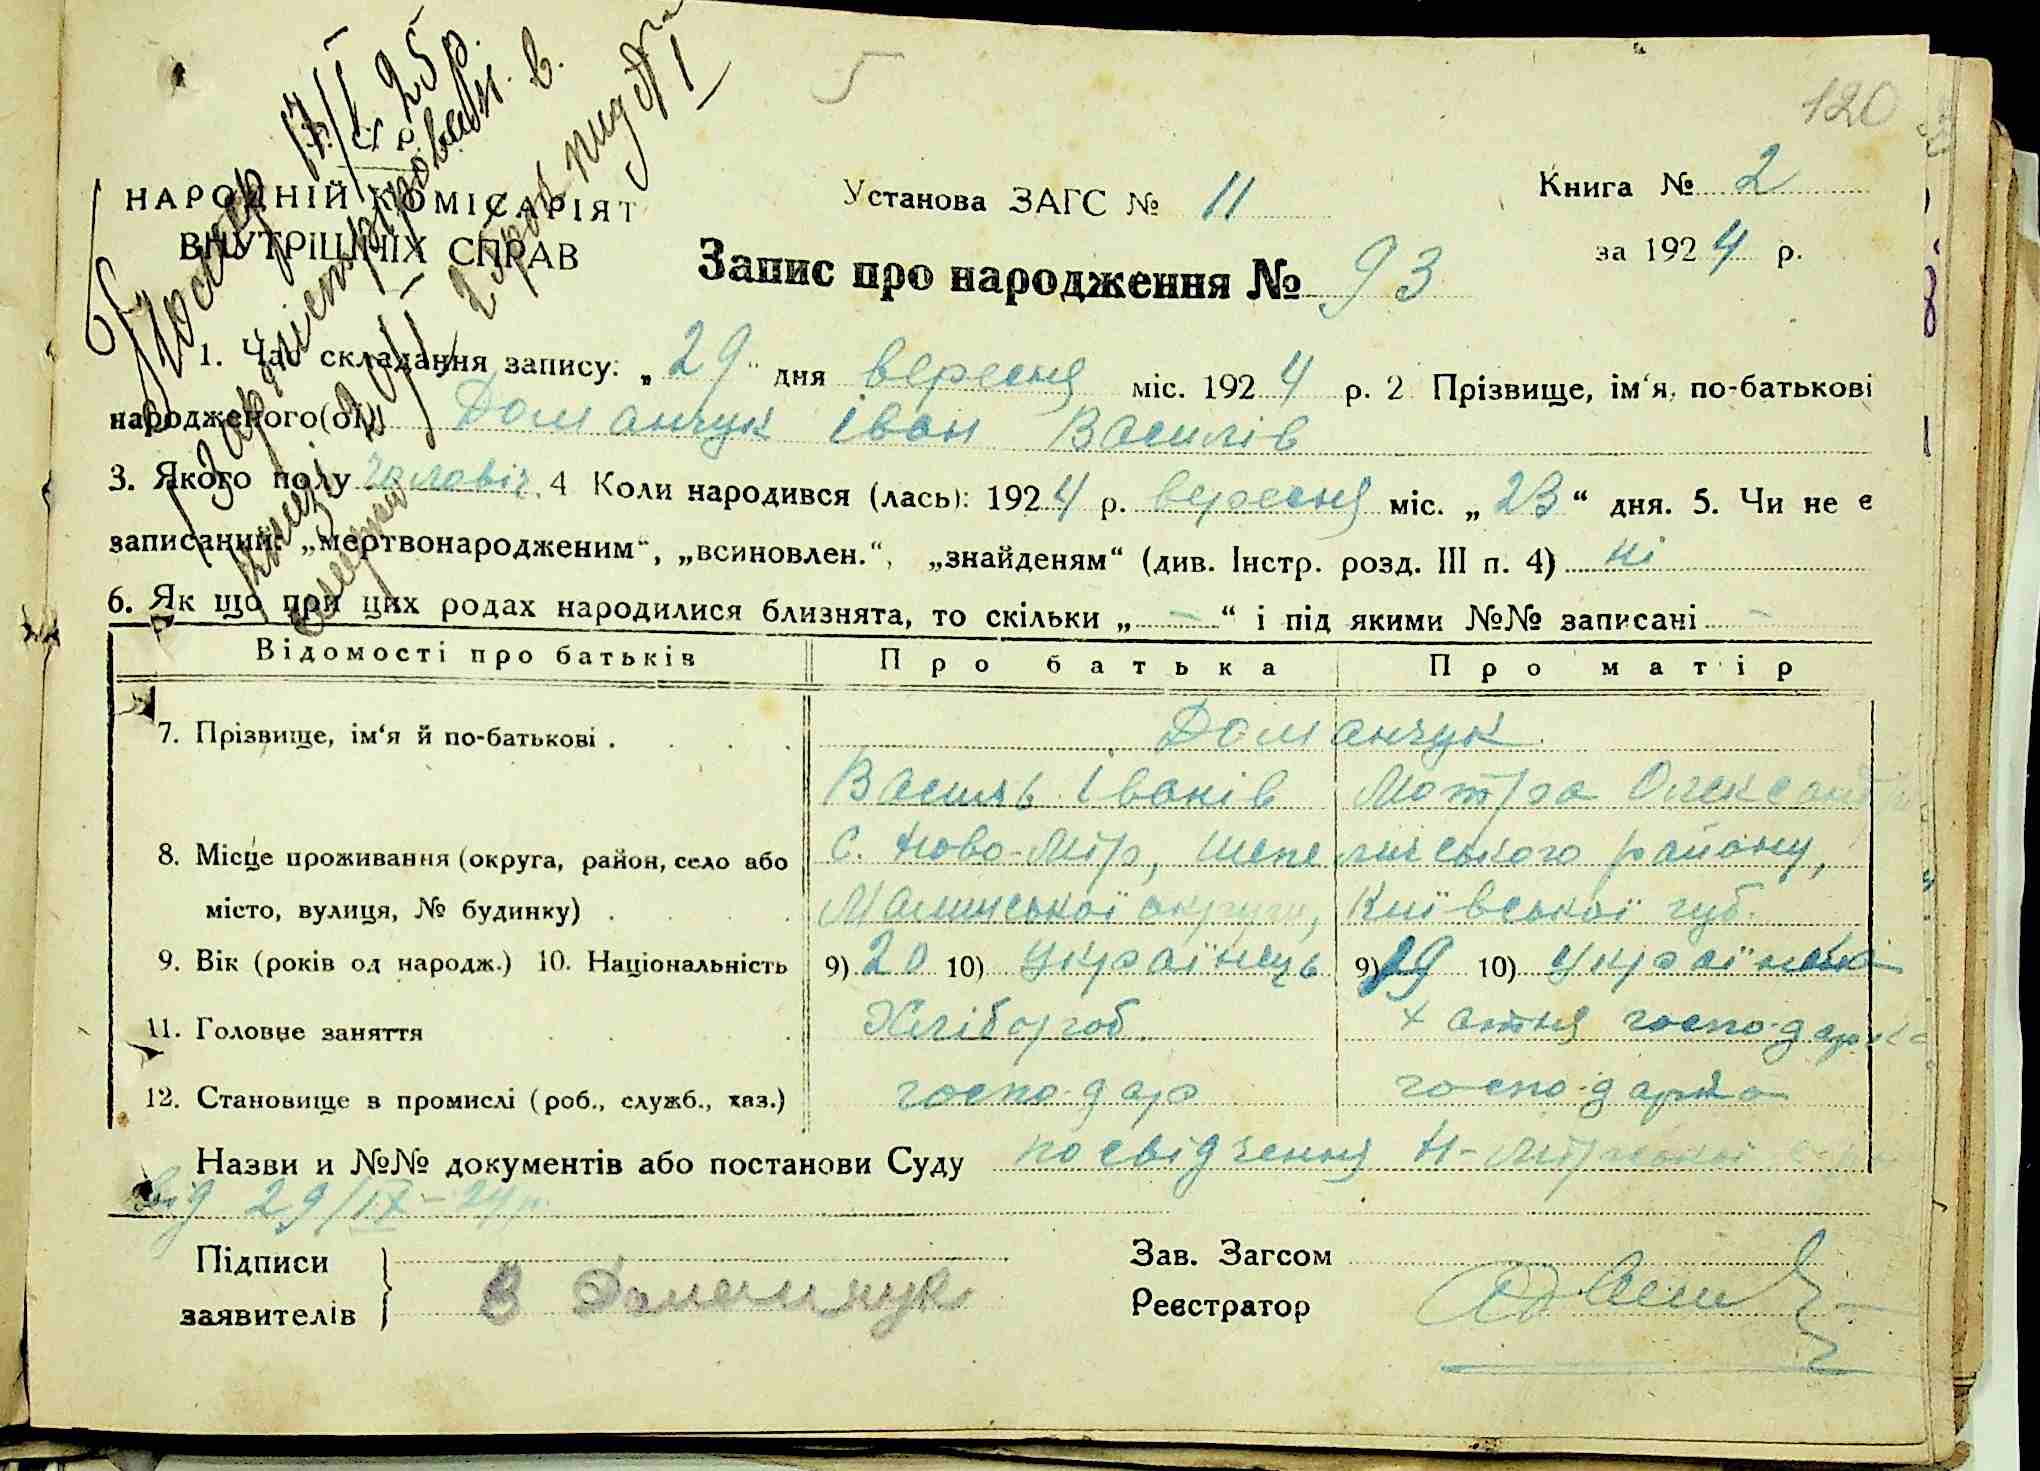 5
120
Помер 17/I 25 р.
Зареєстрован. в
книзі 2 ої 25 рок під № 1
смерти
НАРОДНІЙ КОМІСАРІЯТ
ВНУТРІШНІХ СПРАВ
Установа ЗАГС № 11
Книга № 2
за 1924 р.
Запис про народження № 93
1. Час складання запису: „29" дня вересня міс. 1924 р. 2 Прізвище, ім'я, по-батькові
народженого(ої) Доманчук Іван Василів
3. Якого полу чоловіч. 4 Коли народився (лась): 1924 р. вересня міс. „23" дня. 5. Чи не є
записаний: „мертвонародженим", „всиновлен.", „знайденям" (див. Інстр. розд. III п. 4) ні
6. Як що при цих родах народилися близнята, то скільки „ — " і під якими №№ записані —
Відомості про батьків Про батька Про матір
7. Прізвище, ім'я й по-батькові . Доманчук
Василь Іванів Мотра Олександ
8. Місце проживання (округа, район, село або с. Ново-Мир, Шепелицького району,
місто, вулиця, № будинку) . Малинської округи, Київської губ.
9. Вік (років од народж.) 10. Національність 9) 20 10) Українець 9) 19 10) Українка
11. Головне заняття Хлібороб хатня господарка
12. Становище в промислі (роб., служб., хаз.) господар господарка
Назви и №№ документів або постанови Суду посвідчення Н-Мирської
від 29/IX-24 р.
Підписи
заявителів } В Доманчук
Зав. Загсом
Реєстратор